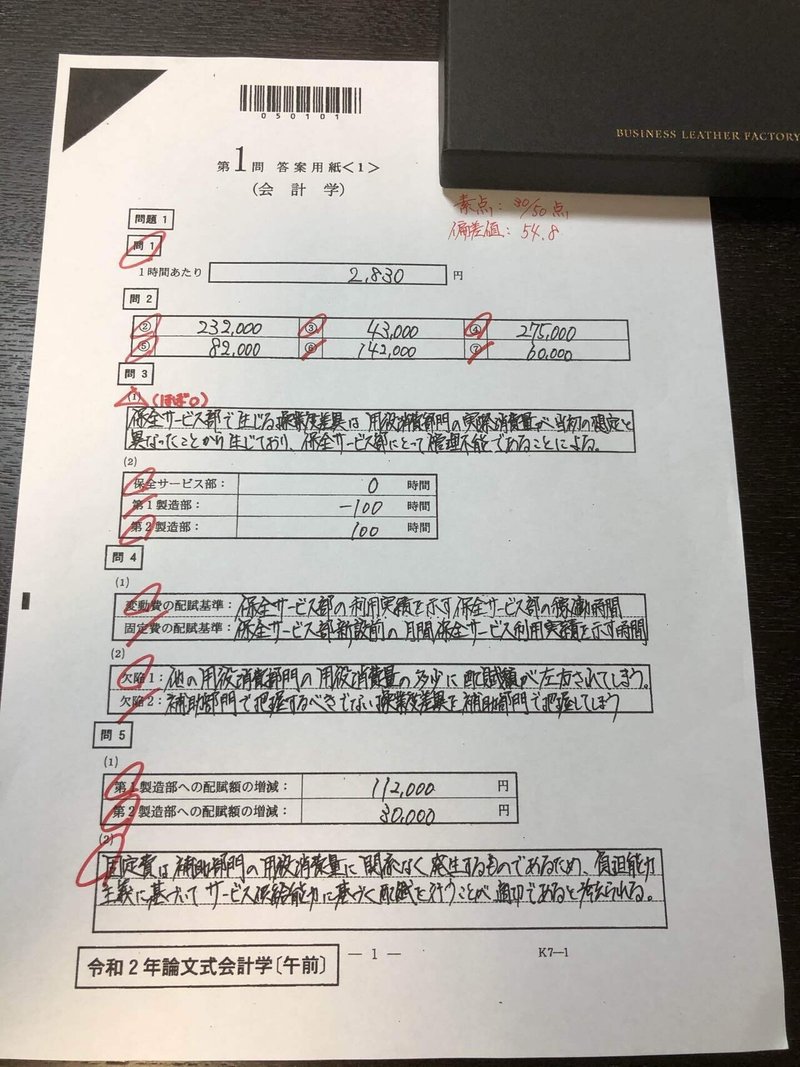 050101
BUSINESS LEATHER FACTORY
第1問 答案用紙<1>
(会計学)
素点: 30/50点
偏差値: 54.8
問題1
問1
1時間あたり 2,830 円
問2
② 232,000 ③ 43,000 ④ 275,000
⑤ 82,000 ⑥ 142,000 ⑦ 60,000
問3
(1) (ほぼ○)
保全サービス部で生じる操業度差異は用役消費部門の実際消費量が、当初の想定と
異なったことから生じており、保全サービス部にとって管理不能であることによる。
(2)
保全サービス部: 0 時間
第1製造部: -100 時間
第2製造部: 100 時間
問4
(1)
変動費の配賦基準: 保全サービス部の利用実績を示す保全サービス部の稼働時間
固定費の配賦基準: 保全サービス部新設前の月間保全サービス利用実績を示す時間
(2)
欠陥1: 他の用役消費部門の用役消費量の多少に配賦額が左右されてしまう。
欠陥2: 補助部門で把握するべきでない操業度差異を補助部門で把握してしまう
問5
(1)
第1製造部への配賦額の増減: 112,000 円
第2製造部への配賦額の増減: 30,000 円
(2)
固定費は補助部門の用役消費量に関係なく発生するものであるため、負担能力
主義に基づいてサービス供給能力に基づく配賦を行うことが適切であると考えられる。
— 1 —
K7—1
令和2年論文式会計学〔午前〕